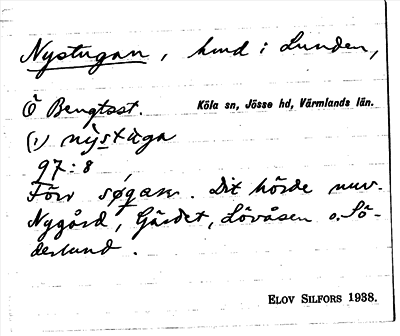 Nystugan, hmd i Lunden,
Ö Bengtsst. Köla sn, Jösse hd, Värmlands län.
(1) nỳstùga
97:8
Förr søgarn. Dit hörde nuv.
Nygård, Gärdet, Lövåsen o. Sö-
derlund.
ELOV SILFORS 1938.